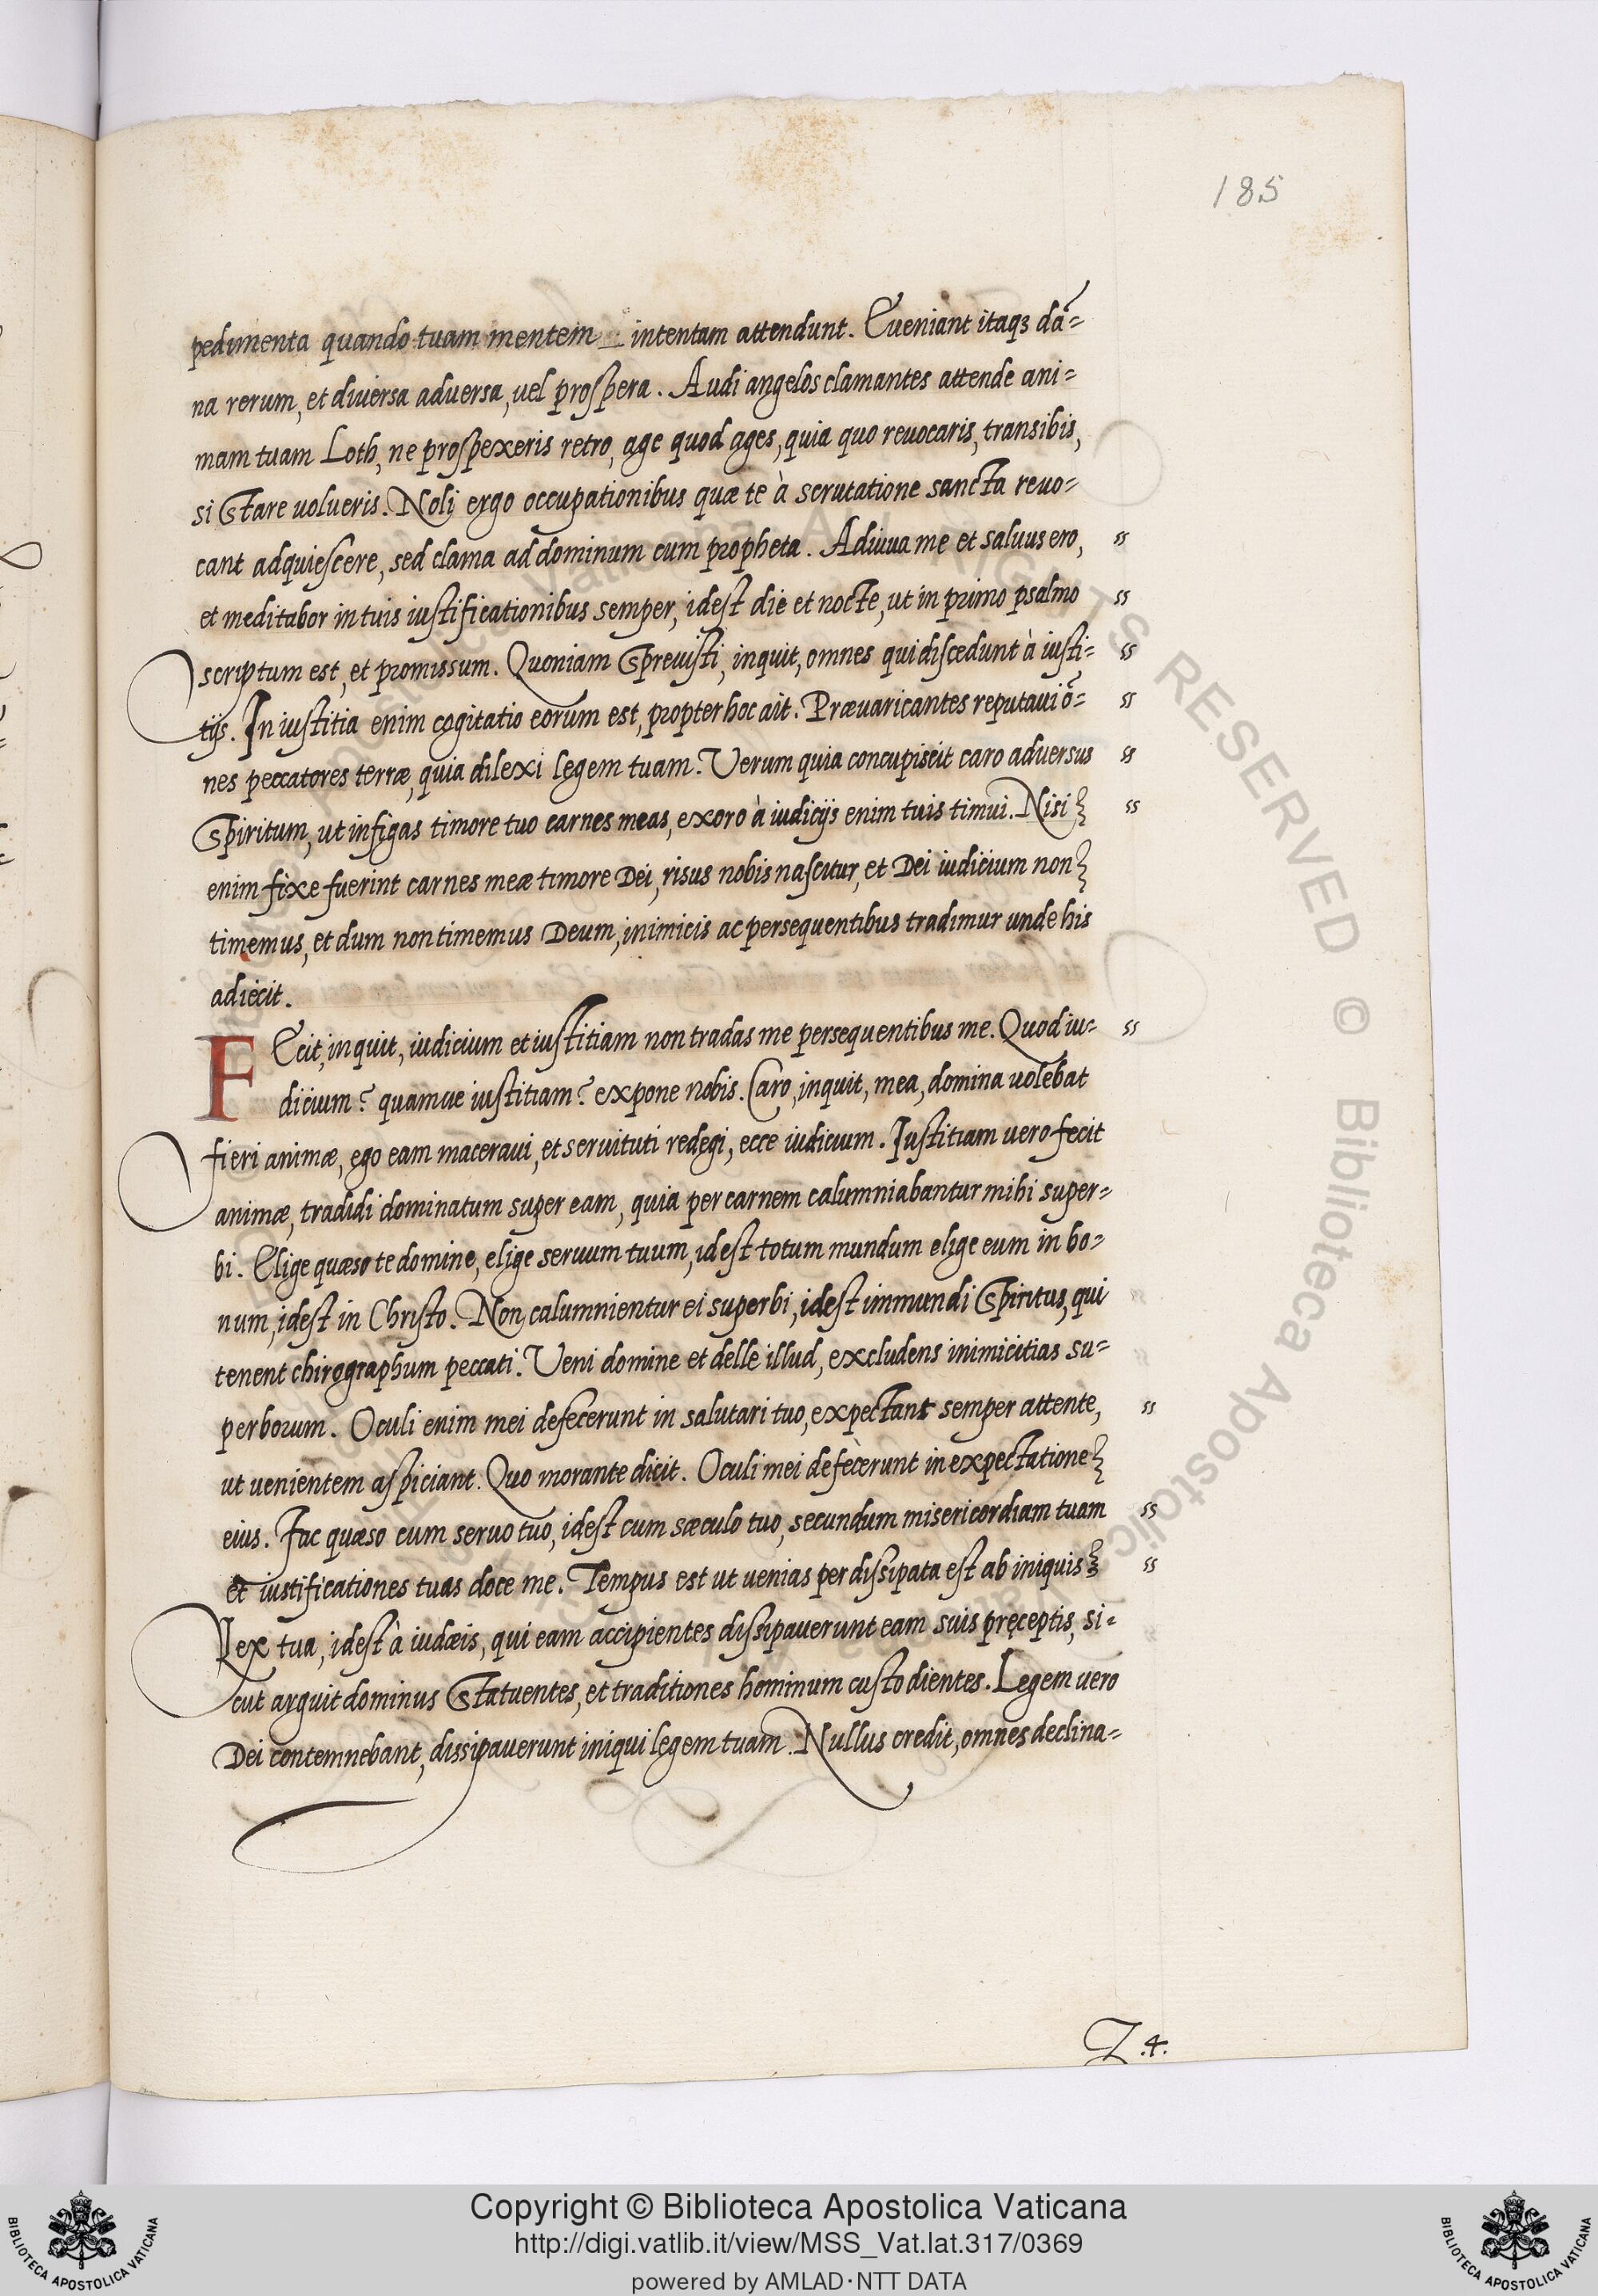 185
pedimenta quando tuam mentem _ intentam attendunt. Eueniant itaqꝫ dā=
na rerum, et diuersa aduersa, uel prospera. Audi angelos clamantes attende ani=
mam tuam Loth, ne prospexeris retro, age quod ages, quia quo reuocaris, transibis,
si stare uolueris. Noli ergo occupationibus quæ te à scrutatione sancta reuo=
cant adquiescere, sed clama ad dominum cum propheta. Adiuua me et saluus ero, ss
et meditabor in tuis iustificationibus semper, idest die et nocte, ut in primo psalmo ss
scriptum est, et promissum. Quoniam spreuisti, inquit, omnes qui discedunt à iusti= ss
tijs. Iniustitia enim cogitatio eorum est, propter hoc ait. Præuaricantes reputaui õ= ss
nes peccatores terræ, quia dilexi legem tuam. Verum quia concupiscit caro aduersus ss
spiritum, ut infigas timore tuo carnes meas, exoro à iudicijs enim tuis timui. Nisi ss
enim fixe fuerint carnes meæ timore Dei, risus nobis nascitur, et Dei iudicium non
timemus, et dum non timemus Deum, inimicis ac persequentibus tradimur unde his
adiecit.
FEcit, inquit, iudicium et iustitiam non tradas me persequentibus me. Quod iu= ss
dicium? quamue iustitiam? expone nobis. Caro, inquit, mea, domina uolebat
fieri animæ, ego eam maceraui, et seruituti redegi, ecce iudicium. Iustitiam uero fecit
animæ, tradidi dominatum super eam, quia per carnem calumniabantur mihi super=
bi. Elige quæso te domine, elige seruum tuum, idest totum mundum elige eum in bo=
num, idest in Christo. Non calumnientur ei superbi, idest immundi spiritus, qui
tenent chirographum peccati. Veni domine et delle illud, excludens inimicitias su=
perborum. Oculi enim mei defecerunt in salutari tuo, expectant semper attente, ss
ut uenientem aspiciant. Quo morante dicit. Oculi mei defecerunt in expectatione
eius. Fac quæso cum seruo tuo, idest cum sæculo tuo, secundum misericordiam tuam ss
et iustificationes tuas doce me. Tempus est ut uenias per dissipata est ab iniquis ss
lex tua, idest à iudæis, qui eam accipientes dissipauerunt eam suis pręceptis, si=
cut arguit dominus statuentes, et traditiones hominum custodientes. Legem uero
Dei contemnebant, dissipauerunt iniqui legem tuam. Nullus credit, omnes declina=
Z .4.
© Biblioteca Apostolica Vaticana. ALL RIGHTS RESERVED
Copyright © Biblioteca Apostolica Vaticana
http://digi.vatlib.it/view/MSS_Vat.lat.317/0369
powered by AMLAD·NTT DATA
BIBLIOTECA APOSTOLICA VATICANA
BIBLIOTECA APOSTOLICA VATICANA